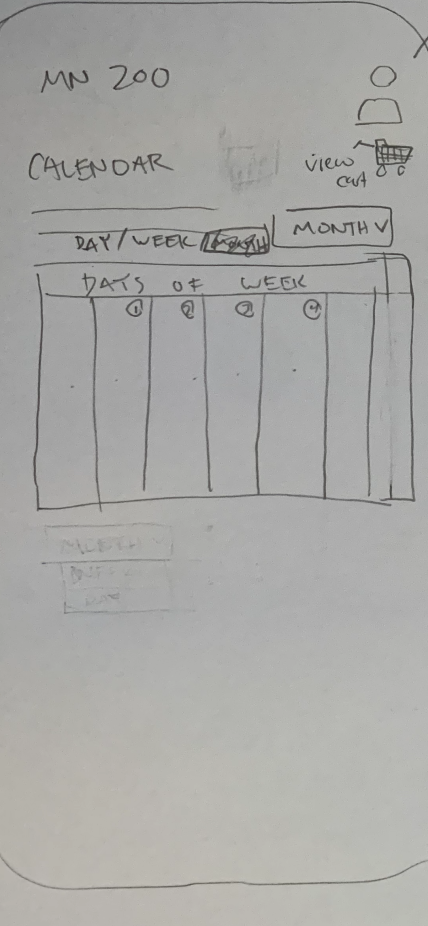 MN 200
CALENDAR
view
cart
DAY / WEEK / MONTH
MONTH
DAYS OF WEEK
1 2 3 4
MONTH
DAY